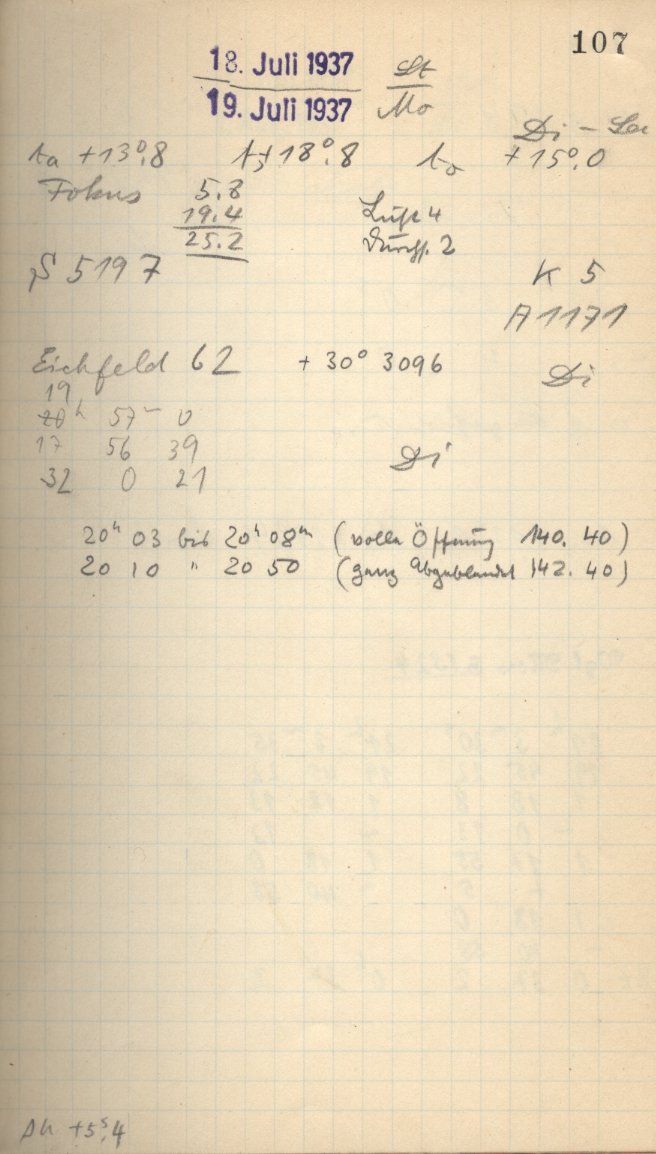 107
18. Juli 1937 St
19. Juli 1937 Mo
Di –
ta +13°.8 +18°.8 +15°.0
Fokus 5.8
19.4 Luft 4
25.2 Durchs. 2
S 5197 K 5
A 1171
Eichfeld 62 + 30° 3096 Di
19
20h 57m 0
17 56 39
32 0 21 Di
20h 03 bis 20h 08m (volle Öffnung 140. 40)
20 10 " 20 50 (ganz abgeblendet 142. 40)
Δu +5s.4